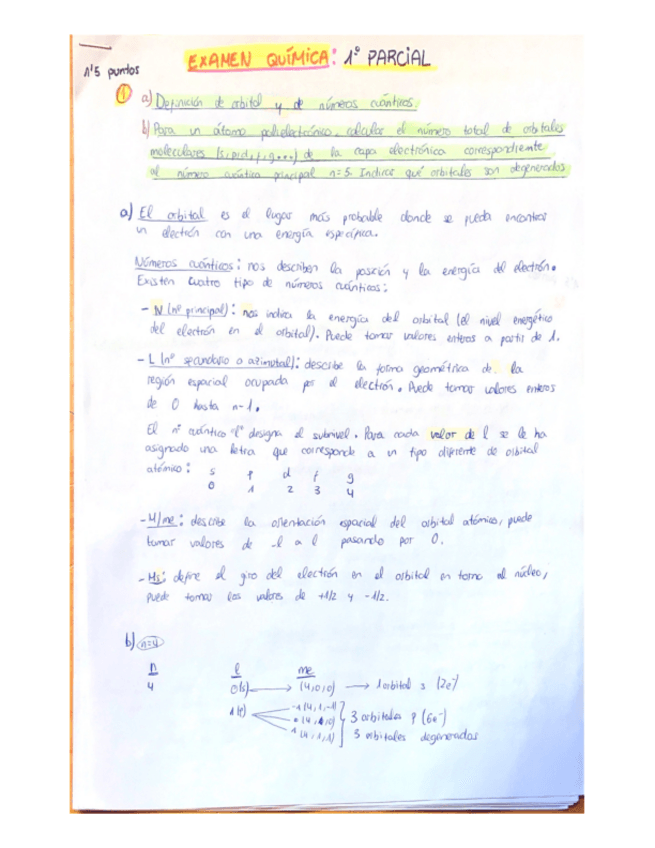 EXAMEN QUÍMICA: 1º PARCIAL
1'5 puntos
1 a) Definición de orbital y de números cuánticos.
b) Para un átomo polielectrónico, calcular el número total de orbitales
moleculares (s, p, d, f, g...) de la capa electrónica correspondiente
al número cuántico principal n=5. Indicar qué orbitales son degenerados
a) El orbital es el lugar más probable donde se pueda encontrar
un electrón con una energía específica.
Números cuánticos: nos describen la posición y la energía del electrón.
Existen cuatro tipo de números cuánticos:
- N (nº principal): nos indica la energía del orbital (el nivel energético
del electrón en el orbital). Puede tomar valores enteros a partir de 1.
- L (nº secundario o azimutal): describe la forma geométrica de la
región espacial ocupada por el electrón. Puede tomar valores enteros
de 0 hasta n-1.
El nº cuántico "l" designa el subnivel. Para cada valor de l se le ha
asignado una letra que corresponde a un tipo diferente de orbital
atómico: s p d f g
0 1 2 3 4
- M/me: describe la orientación espacial del orbital atómico, puede
tomar valores de -l a l pasando por 0.
- Ms: define el giro del electrón en el orbital en torno al núcleo,
puede tomar los valores de +1/2 y -1/2.
b) n=4
n l me
4 0(s) → (4,0,0) → 1 orbital s (2e-)
1(p) -1 (4,1,-1)
0 (4,1,0) 3 orbitales p (6e-)
1 (4,1,1) 3 orbitales degenerados